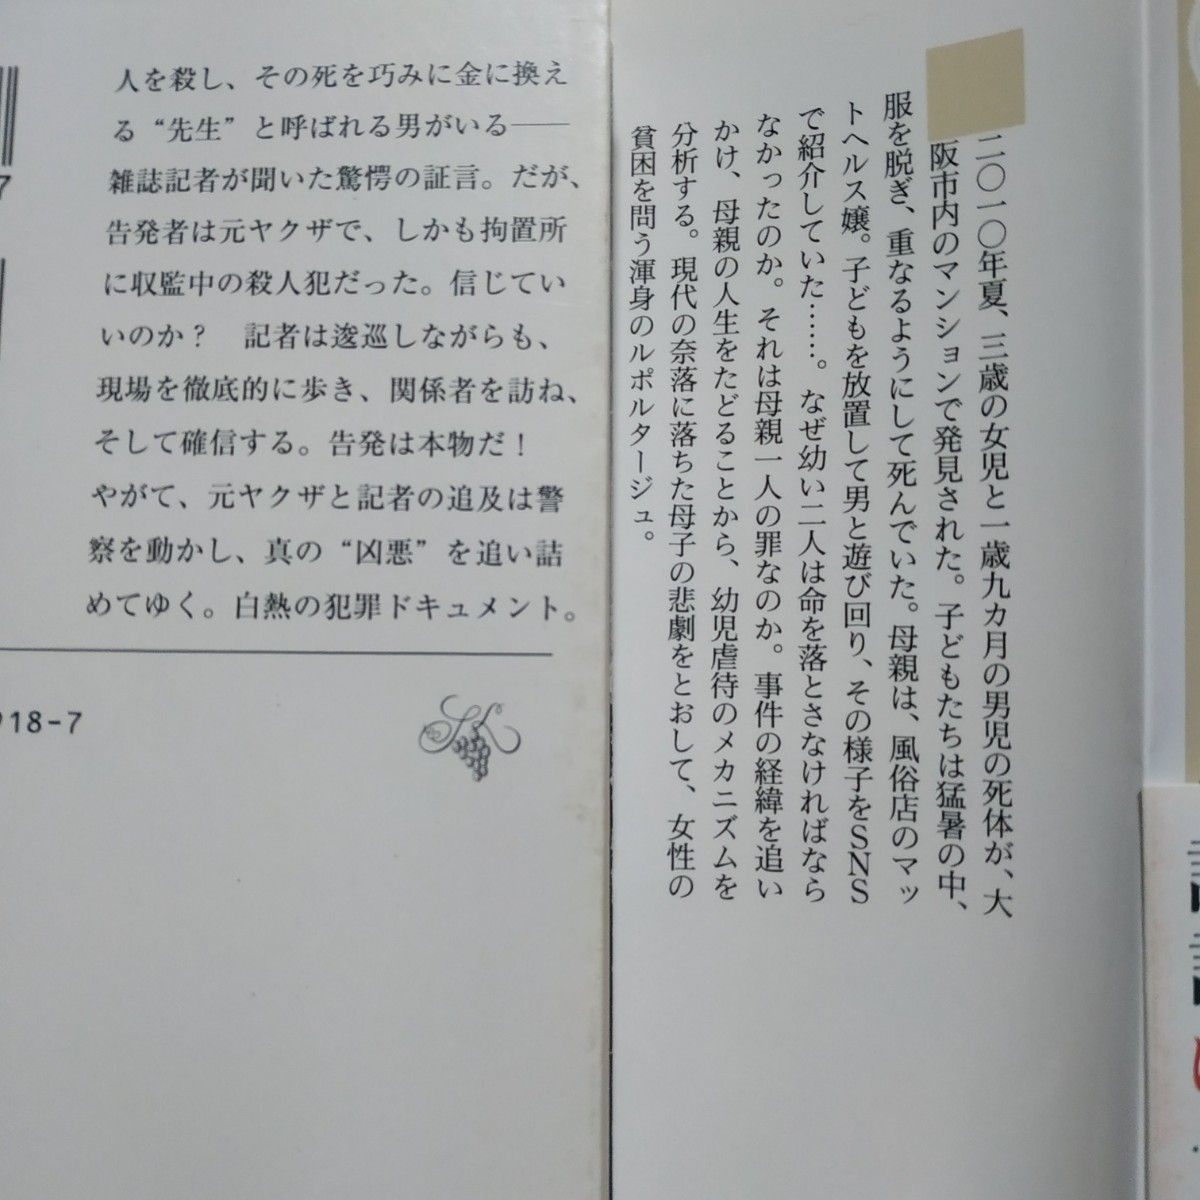 人を殺し、その死を巧みに金に換え
る“先生”と呼ばれる男がいる――
雑誌記者が聞いた驚愕の証言。だが、
告発者は元ヤクザで、しかも拘置所
に収監中の殺人犯だった。信じてい
いのか？　記者は逡巡しながらも、
現場を徹底的に歩き、関係者を訪ね、
そして確信する。告発は本物だ！
やがて、元ヤクザと記者の追及は警
察を動かし、真の“凶悪”を追い詰
めてゆく。白熱の犯罪ドキュメント。
18-7
二〇一〇年夏、三歳の女児と一歳九カ月の男児の死体が、大
阪市内のマンションで発見された。子どもたちは猛暑の中、
服を脱ぎ、重なるようにして死んでいた。母親は、風俗店のマッ
トヘルス嬢。子どもを放置して男と遊び回り、その様子をSNS
で紹介していた……。なぜ幼い二人は命を落とさなければなら
なかったのか。それは母親一人の罪なのか。事件の経緯を追い
かけ、母親の人生をたどることから、幼児虐待のメカニズムを
分析する。現代の奈落に落ちた母子の悲劇をとおして、女性の
貧困を問う渾身のルポルタージュ。